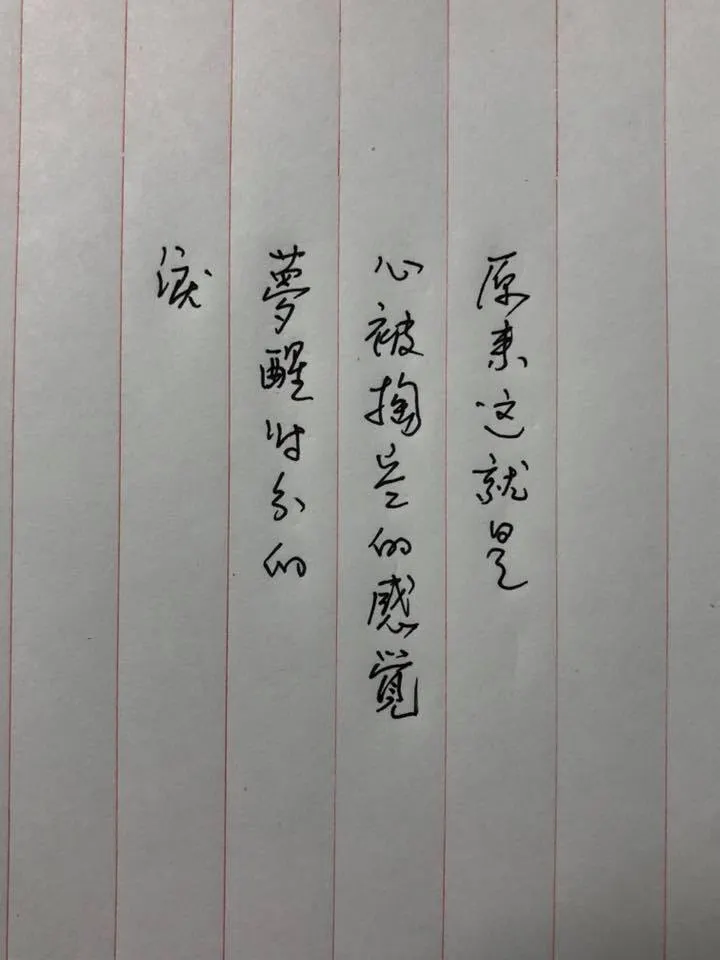 原来这就是
心被掏空的感覺
夢醒时分的
淚